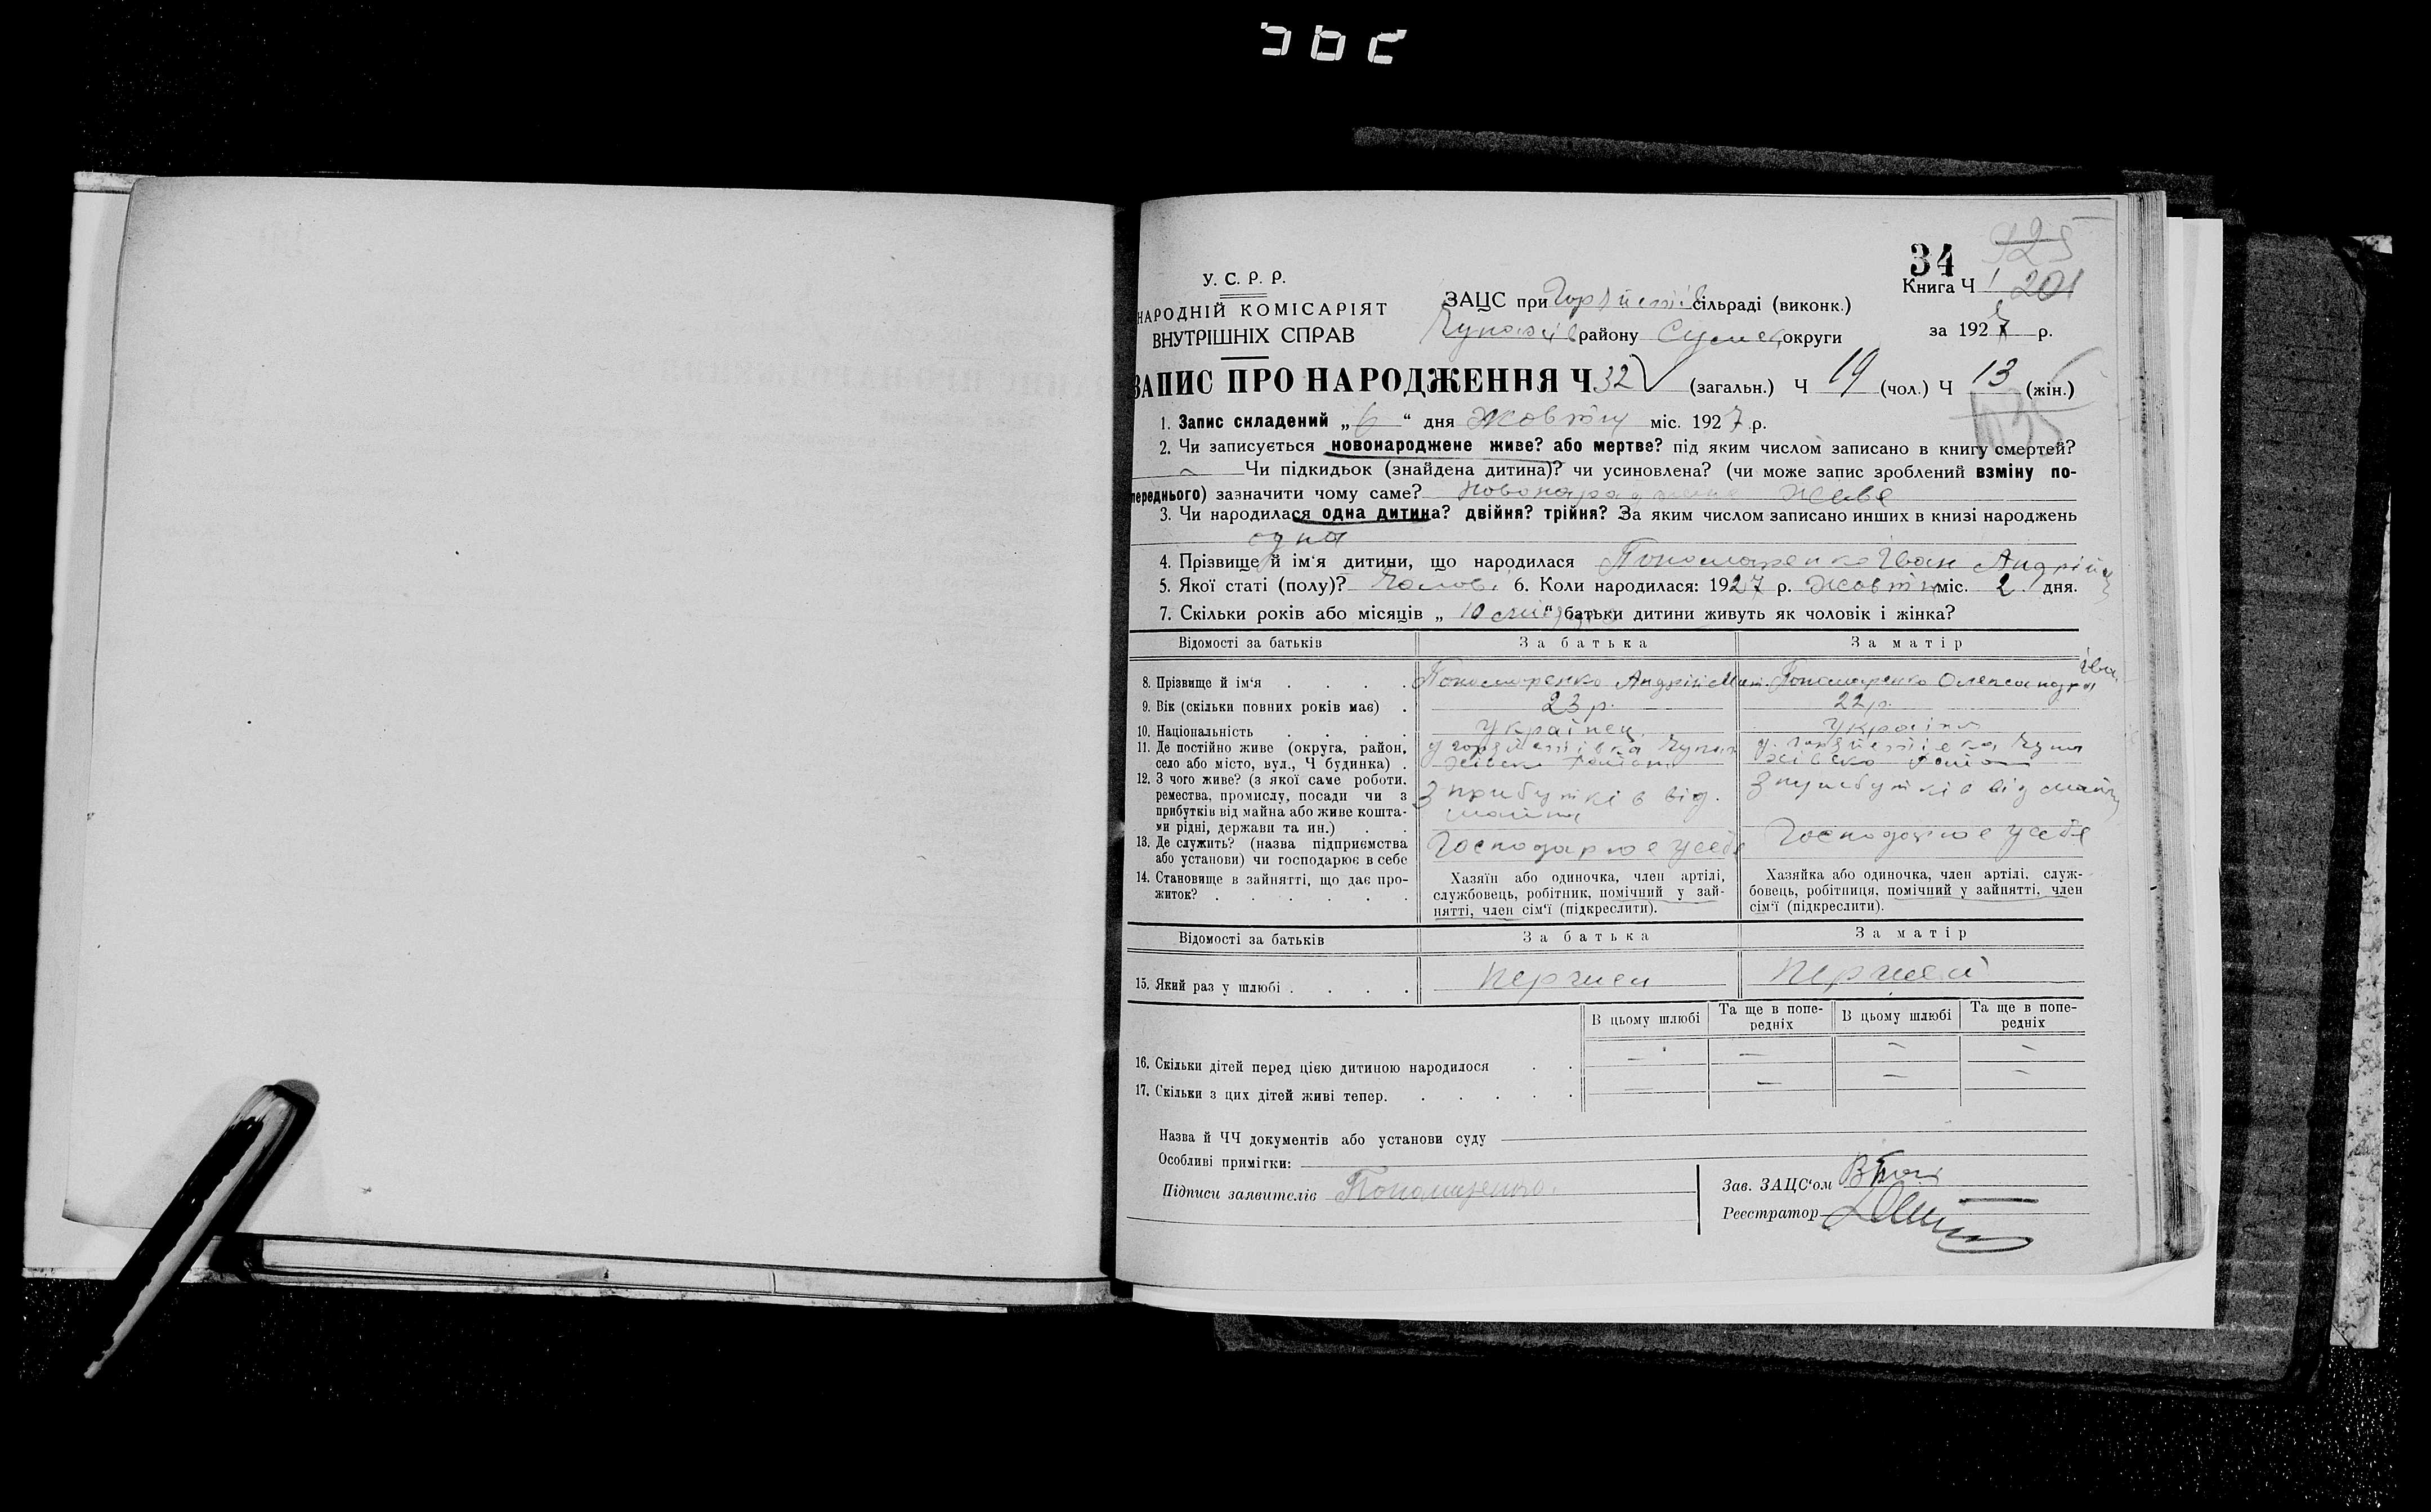 34
925
У. С. Р. Р.
НАРОДНІЙ КОМІСАРІЯТ
ВНУТРІШНІХ СПРАВ
ЗАЦС при сільраді (виконк.)
району округи
Книга Ч 1 201
за 1927 р.
ЗАПИС ПРО НАРОДЖЕННЯ Ч 32 (загальн.) Ч 19 (чол.) Ч 13 (жін.)
1. Запис складений „ 6 “ дня Жовтня міс. 1927 р.
2. Чи записується новонароджене живе? або мертве? під яким числом записано в книгу смертей?
Чи підкидьок (знайдена дитина)? чи усиновлена? (чи може запис зроблений взміну по-
переднього) зазначити чому саме? новонароджене живе
3. Чи народилася одна дитина? двійня? трійня? За яким числом записано инших в книзі народжень
одна
4. Прізвище й ім'я дитини, що народилася Пономаренко Іван Андрій
5. Якої статі (полу)? Чолові 6. Коли народилася: 1927 р. Жовтня міс. 2 дня.
7. Скільки років або місяців „ 10 місяців “ батьки дитини живуть як чоловік і жінка?
Відомості за батьків За батька За матір
8. Прізвище й ім'я Пономаренко Андрій Мит. Пономаренко Олександра Іва.
9. Вік (скільки повних років має) 23 р. 22 р.
10. Національність Українец Україн
11. Де постійно живе (округа, район,
село або місто, вул., Ч будинка)
12. З чого живе? (з якої саме роботи,
ремества, промислу, посади чи з
прибутків від майна або живе кошта-
ми рідні, держави та ин.)
з прибутків від
майна
з прибутків від майна
13. Де служить? (назва підприємства
або установи) чи господарює в себе
Господарює у себе
Господарює у себе
14. Становище в зайнятті, що дає про-
житок?
Хазяїн або одиночка, член артілі,
службовець, робітник, помічний у зай-
нятті, член сім'ї (підкреслити).
Хазяйка або одиночка, член артілі, служ-
бовець, робітниця, помічний у зайнятті, член
сім'ї (підкреслити).
Відомості за батьків За батька За матір
15. Який раз у шлюбі Перший Перший
В цьому шлюбі Та ще в попе-
редніх В цьому шлюбі Та ще в попе-
редніх
16. Скільки дітей перед цією дитиною народилося — — — —
17. Скільки з цих дітей живі тепер. — — — —
Назва й ЧЧ документів або установи суду
Особливі примітки:
Підписи заявителів Пономаренко.
Зав. ЗАЦС'ом
Реєстратор